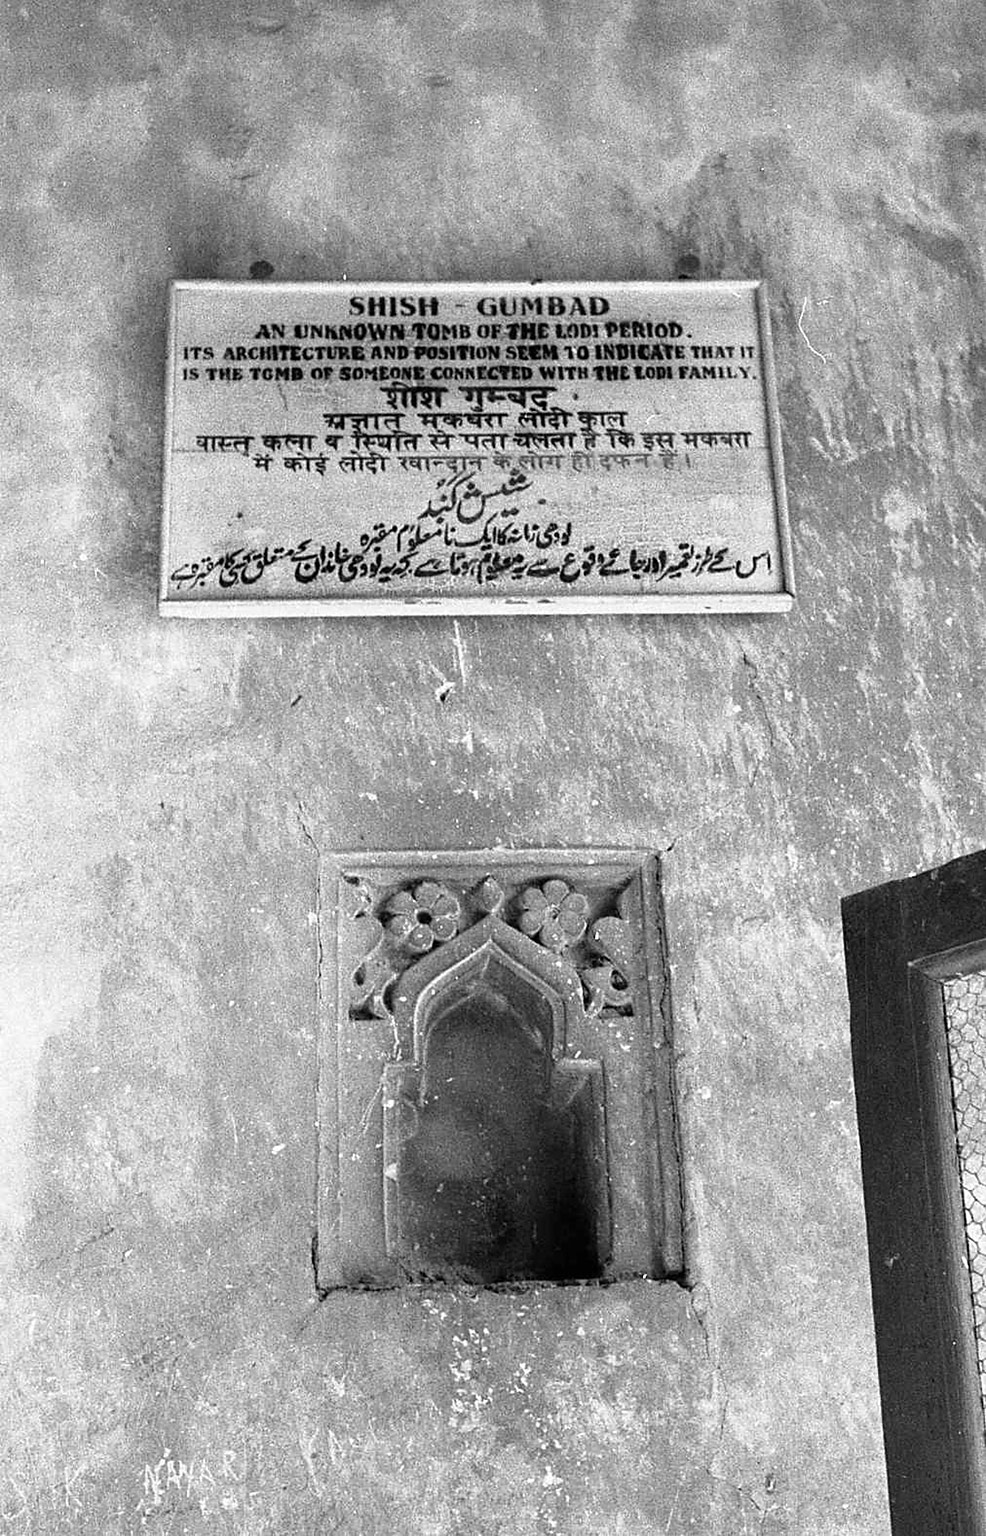 SHISH - GUMBAD
AN UNKNOWN TOMB OF THE LODI PERIOD.
ITS ARCHITECTURE AND POSITION SEEM TO INDICATE THAT IT
IS THE TOMB OF SOMEONE CONNECTED WITH THE LODI FAMILY.
शीश गुम्बद
अज्ञात मकबरा लोदी काल
वास्तु कला व स्थिति से पता चलता है कि इस मकबरा
में कोई लोदी खान्दान के लोग ही दफन हैं।
شیش گنبد
لودھی زمانہ کا ایک نا معلوم مقبرہ
اس کے طرز تعمیر اور جائے وقوع سے یہ معلوم ہوتا ہے کہ یہ لودھی خاندان کے متعلق کسی کا مقبرہ ہے